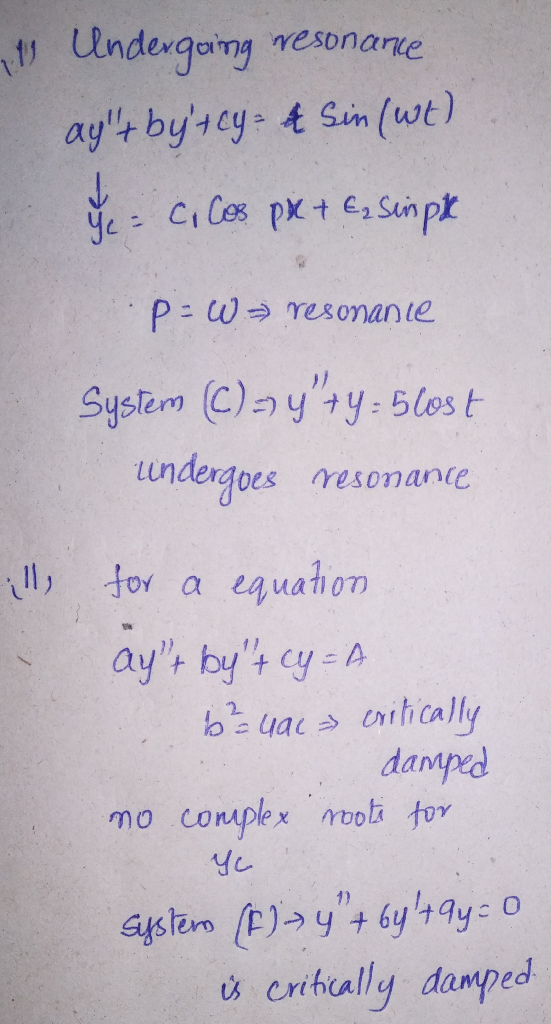 i) Undergoing resonance
ay"+by'+cy= Sin(wt)
↓
yc = C1 Cos px + C2 Sin px
p = w ⇒ resonance
System (C) ⇒ y"+y = 5 Cos t
undergoes resonance
ii) for a equation
ay"+ by"+ cy = A
b²=4ac ⇒ critically
damped
no complex roots for
yc
system (F) → y"+ 6y'+9y = 0
is critically damped